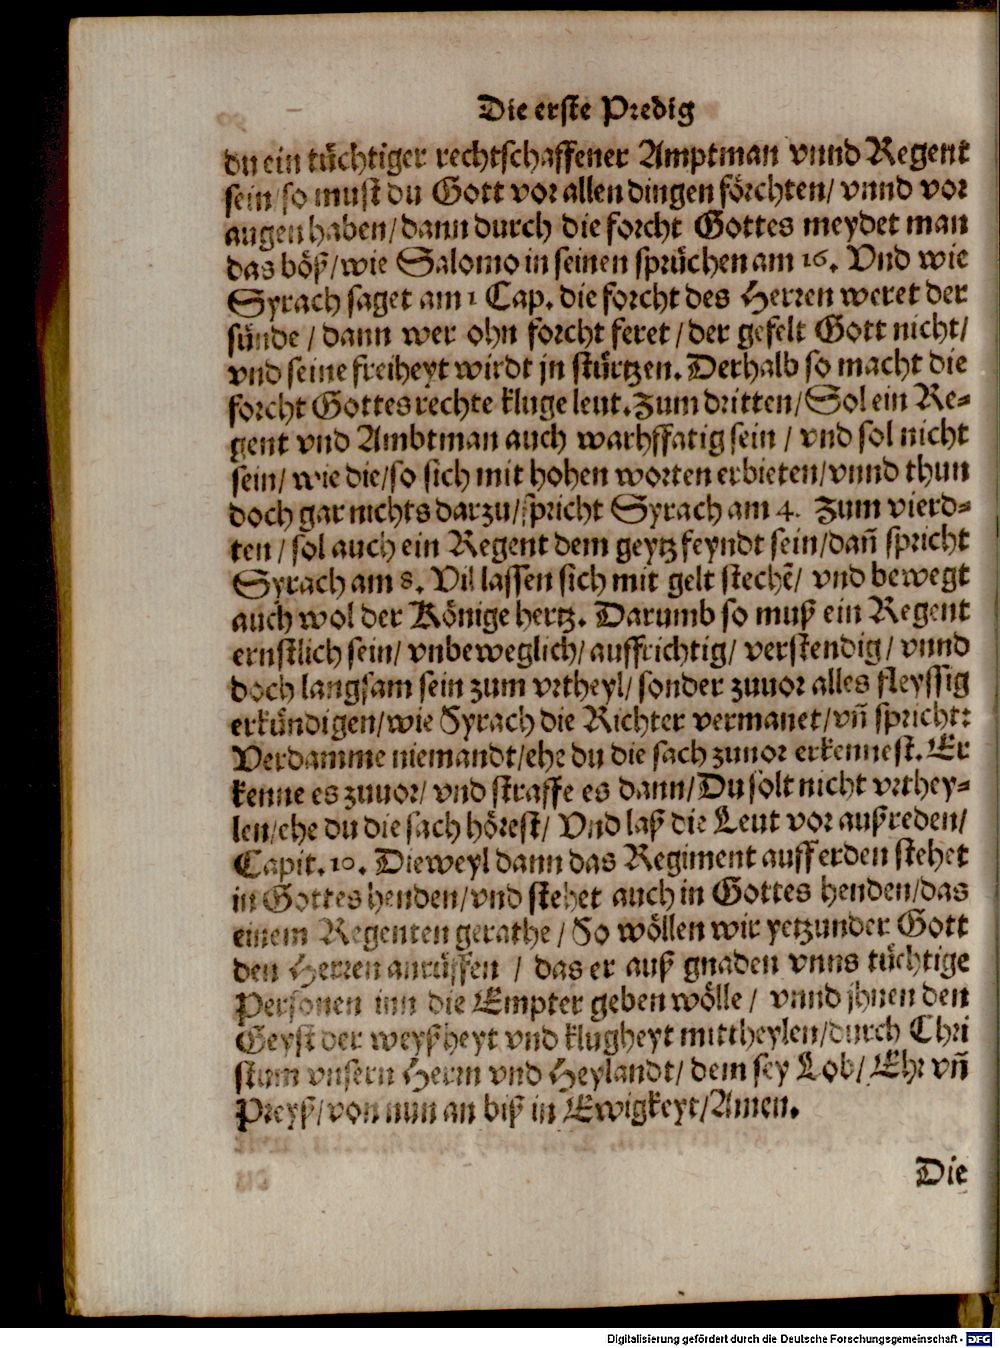 Die erste Predig
du ein tüchtiger rechtschaffener Amptman vnnd Regent
sein/so must du Gott vor allen dingen förchten/ vnnd vor
augen haben/dann durch die forcht Gottes meydet man
das böß/wie Salomo in seinen sprüchen am 16. Vnd wie
Syrach saget am 1 Cap. die forcht des Herren weret der
sünde / dann wer ohn forcht feret / der gefelt Gott nicht/
vnd seine freiheyt wirdt jn stürtzen. Derhalb so macht die
forcht Gottes rechte kluge leut. Zum dritten/Sol ein Re-
gent vnd Ambtman auch warhffatig sein / vnd sol nicht
sein/ wie die/so sich mit hohen worten erbieten/vnnd thun
doch gar nichts darzu/spricht Syrach am 4. Zum vierd-
ten / sol auch ein Regent dem geytz feyndt sein/dañ spricht
Syrach am 8. Vil lassen sich mit gelt stechẽ/ vnd bewegt
auch wol der Könige hertz. Darumb so muß ein Regent
ernstlich sein/ vnbeweglich/ auffrichtig/ verstendig/ vnnd
doch langsam sein zum vrtheyl/ sonder zuuor alles fleyssig
erkündigen/wie Syrach die Richter vermanet/vñ spricht:
Verdamme niemandt/ehe du die sach zuuor erkennest. Er
kenne es zuuor/ vnd straffe es dann/Du solt nicht vrthey-
len/ehe du die sach hörest/ Vnd laß die Leut vor außreden/
Capit. 10. Dieweyl dann das Regiment auff erden stehet
in Gottes henden/vnd stehet auch in Gottes henden/das
einem Regenten gerathe / So wöllen wir yetzunder Gott
den Herren anrüffen / das er auß gnaden vnns tüchtige
Personen inn die Empter geben wölle / vnnd jhnen den
Geyst der weyßheyt vnd klugheyt mittheylen/durch Chri
stum vnsern Herrn vnd Heylandt/ dem sey Lob/ Ehr vñ
Preyß/von nun an biß in Ewigkeyt/Amen.
Die
Digitalisierung gefördert durch die Deutsche Forschungsgemeinschaft - DFG